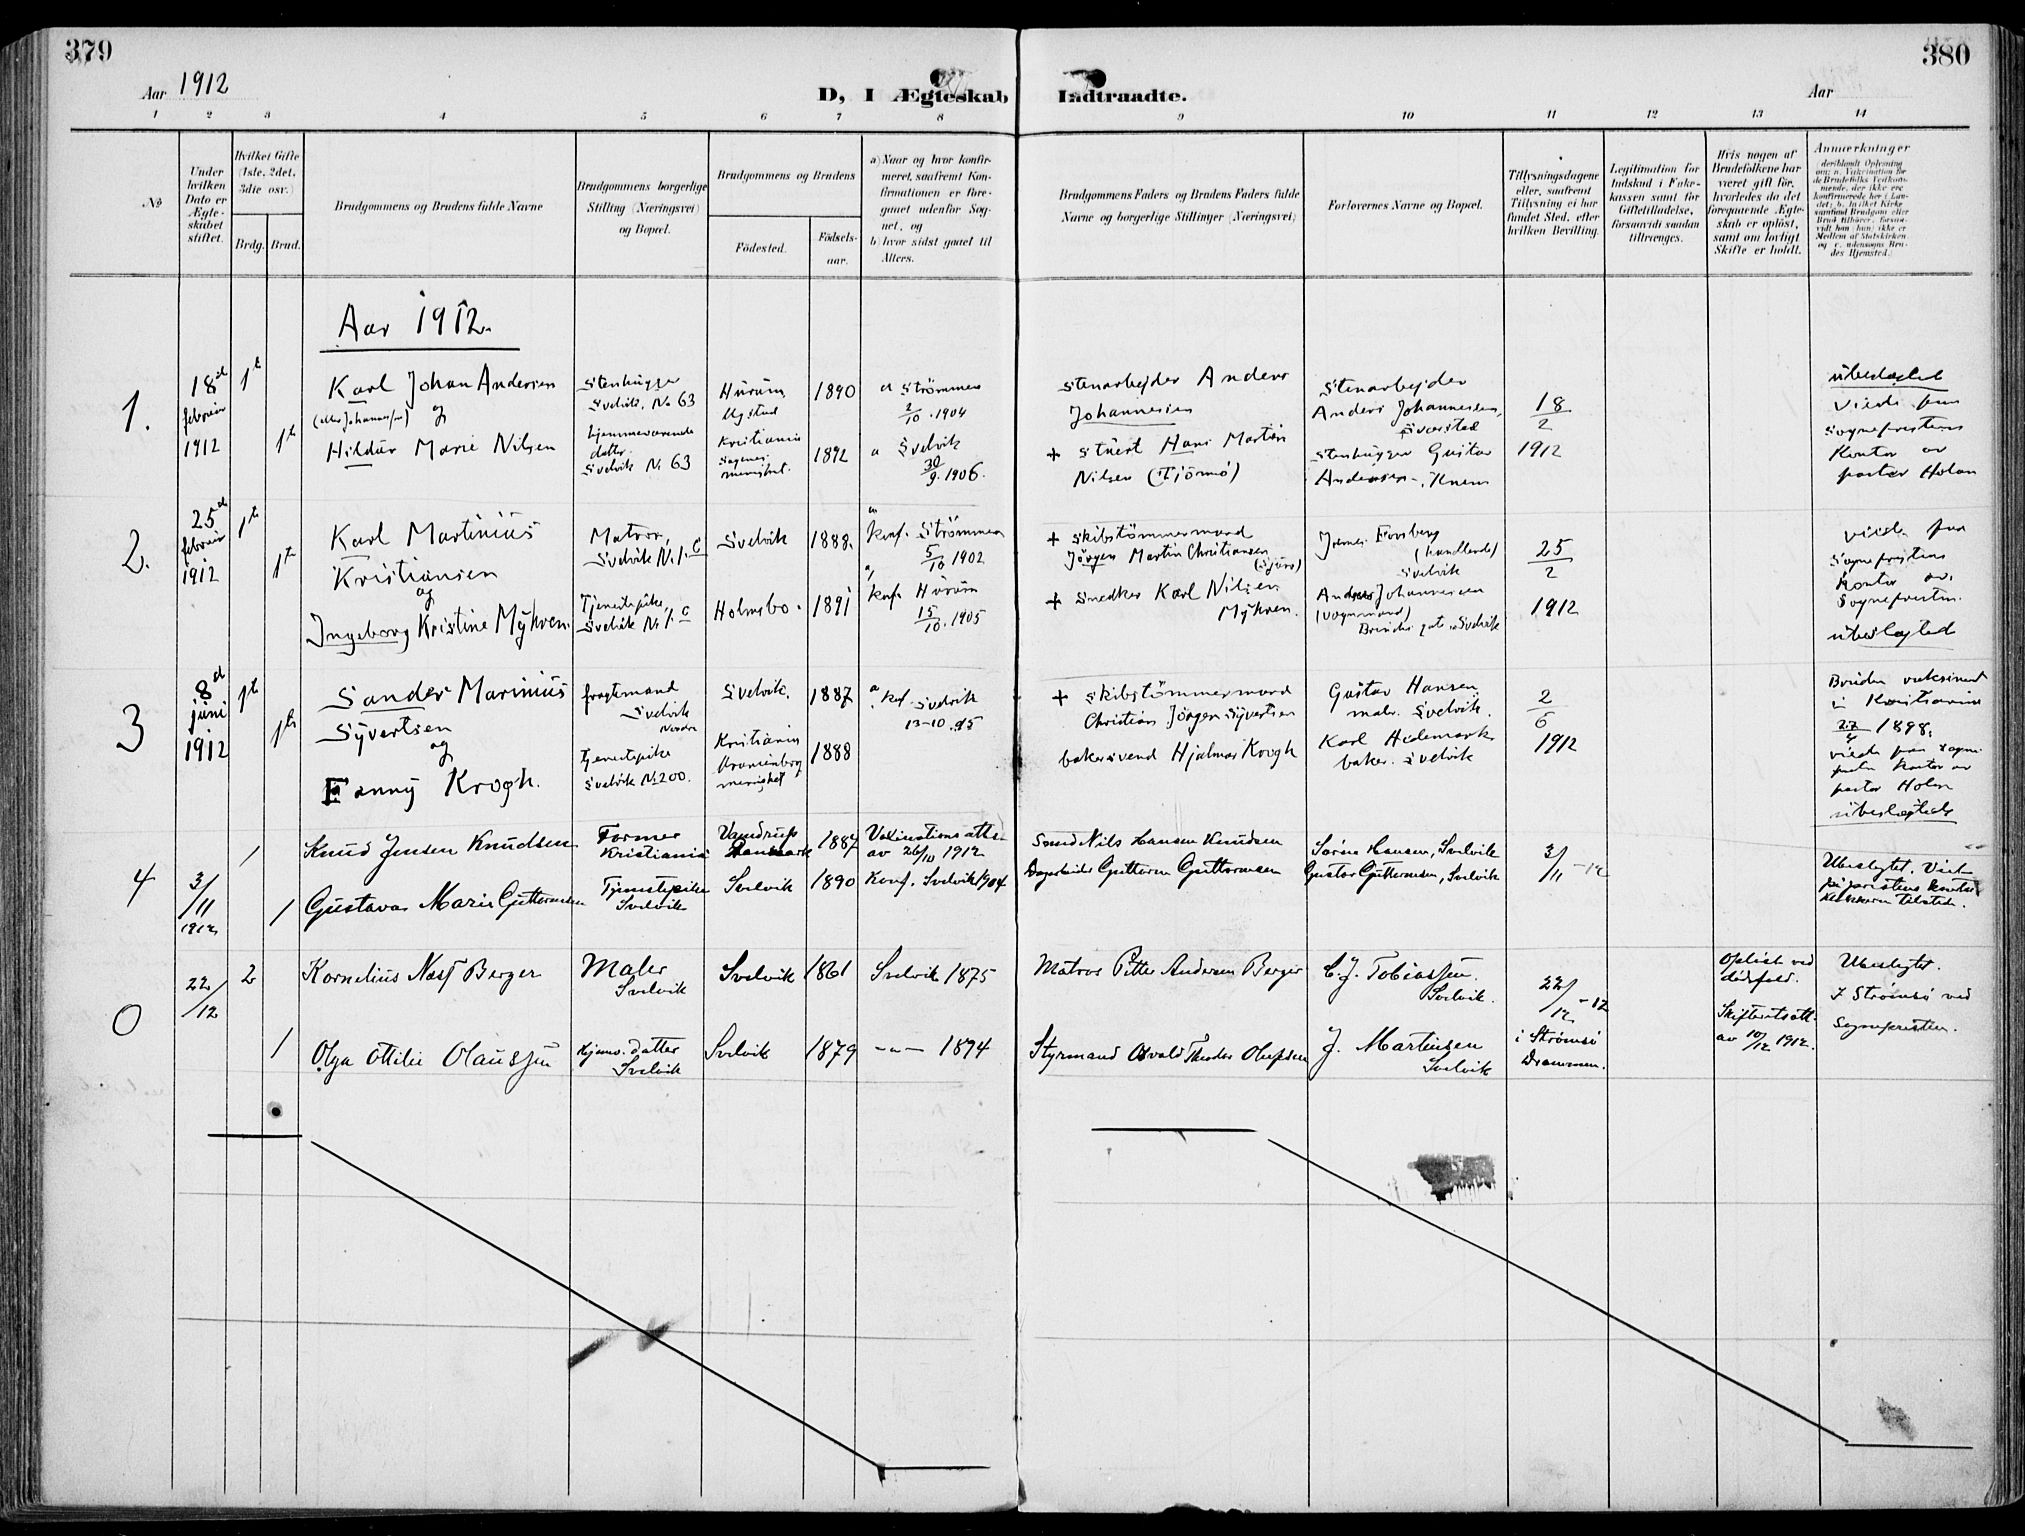 379
380
Aar 1912
D, I Ægteskab Indtraadte.
Aar
1 2 3 4 5 6 7 8 9 10 11 12 13 14
No
Under hvilken Dato er Ægteskabet stiftet.
Hvilket Gifte (1ste, 2det, 3die osv.)
Brdg. Brud.
Brudgommens og Brudens fulde Navne
Brudgommens borgerlige Stilling (Næringsvei) og Bopæl.
Brudgommens og Brudens
Fødested.
Fødselsaar.
a) Naar og hvor konfirmeret, saafremt Konfirmationen er foregaaet udenfor Sognet, og
b) hvor sidst gaaet til Alters.
Brudgommens Faders og Brudens Faders fulde Navne og borgerlige Stillinger (Næringsvei)
Forlovernes Navne og Bopæl.
Tillysningsdagene eller, saafremt Tillysning ei har fundet Sted, efter hvilken Bevilling.
Legitimation for Indskud i Enkekassen samt for Giftetilladelse, forsaavidt saadan tiltrænges.
Hvis nogen af Brudefolkene har været gift før, hvorledes da det foregaaende Ægteskab er opløst, samt om lovligt Skifte er holdt.
Anmærkninger
Aar 1912.
1.
18d februar 1912
1te
1te
Karl Johan Andersen
og
Hildur Marie Nilsen
Stenhugger
Svelvik, No 63
hjemmeværende datter
Svelvik No 63
Hurum
Kristiania
1890
1892
a Strømmen
2/10 1904
a Svelvik
30/9 1906.
Stenarbejder Anders
Johannesen
+ Stuert Hans Martin
Nilsen (Tjømø)
Stenarbejder
Anders Johannesen,
Stenhugger Gustav
Andersen
18/2
1912
ubeslægtet
viede paa
Sogneprestens
Kontor av
pastor Holm
2.
25d februar 1912
1te
1te
Karl Martinius
Kristiansen
og
Ingeborg Kristine Myhren.
Matros,
Svelvik No 1. c
Tjenestepike
Svelvik No 1. c
Svelvik
Holmsbo.
1888.
1891
konf. Strømmen
5/10 1902
konf. Hurum
15/10 1905
+ Skibstømmermand
Jörgen Martin Christiansen
+ Snedker Karl Nilsen
Myhren.
Forsberg
(handlende)
Svelvik
Anders Johannesen
(vognmand)
Svelvik
25/2
1912
viede paa
Sogneprestens
Kontor av
Sognepresten.
ubeslægted
3
8d juni 1912
1te
1te
Sander Marinius
Syvertsen
og
Fanny Krogh.
fragtemand
Svelvik
Nordre
tjenestepike
Svelvik No 200.
Svelvik.
Kristiania
Uranienborg
menighet
1887
1888
a kf. Svelvik
13-10
+ Skibstömmermand
Christian Jörgen Syvertsen
bakersvend Hjalmar Krogh
Gustav Hansen
maler. Svelvik.
Karl Hedemark
baker. Svelvik
2/6
1912
Bruden vaksinert
i Kristiania
1898.
viede paa Sogneprestens Kontor av
pastor Holm
ubeslægtede
4
3/11 1912
1
1
Knud Jensen Knudsen
Gustava Marie Guttormsen
Former
Kristiania
Tjenestepike
Svelvik
Vamdrup
Danmark
Svelvik
1887
1890
Vakinationsatt.
av 26/10 1912
Konf. Svelvik 1904
Smed Nils Hansen Knudsen
Guttorm Guttormsen
Søren Hansen, Svelvik
Gustav Guttormsen, Svelvik
3/11 -12
Ubeslegtet. Viet
paa prestens kontor
0
22/12
2
1
Kornelius Næss Berger
Olga Ottilie Olaussen
Maler
Svelvik
Hjemv. datter
Svelvik
Svelvik
Svelvik
1861
1879
Svelvik 1875
-"- 1894
Matros Petter Andersen Berger
Styrmand Osvald Theodor Olufsen
C. J. Tobiassen.
Svelvik.
J. Martinsen
Svelvik
22/12 -12
i Strømsø
Drammen.
Opløst ved
dødsfald.
Skifteretsatt.
av 10/12 1912.
Ubeslegtet.
I Strømsø ved
Sognepresten.